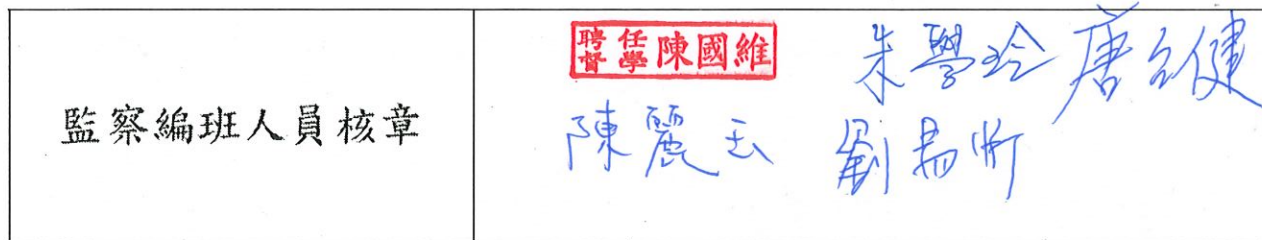 監察編班人員核章
聘任督學陳國維
朱學玲 唐
陳麗玉 劉